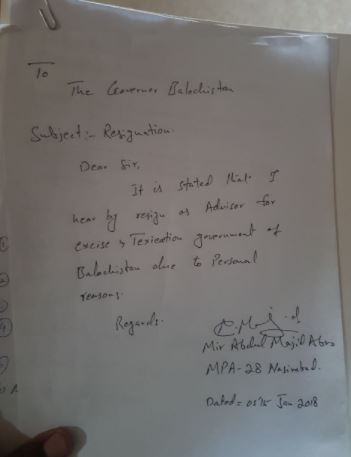 To
The Governor Balochistan
Subject:- Resignation.
Dear Sir,
It is stated that I
hear by resign as Advisor for
excise & Texication government of
Balochistan due to Personal
reasons.
Regards.
Mir Abdul Majid Abro
MPA-28 Nasirabad.
Dated= Jan 2018